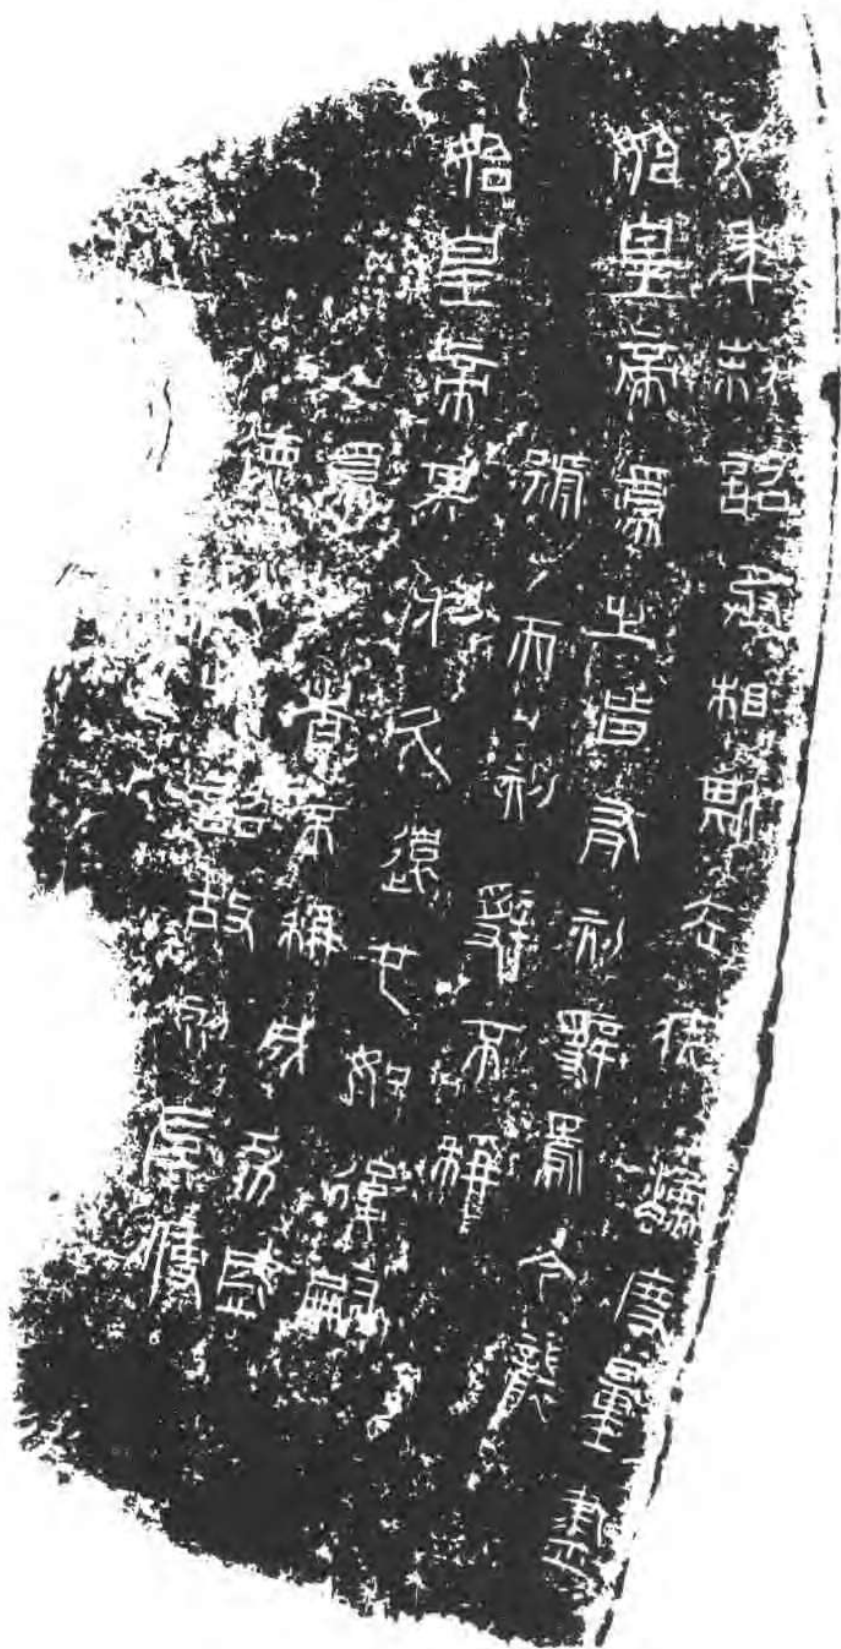 元年制詔丞相斯去疾灋度量盡
始皇帝爲之皆有刻辭焉今襲
號而刻辭不稱
始皇帝其於久遠也如後嗣
爲者不稱成功盛
德詔故刻左使